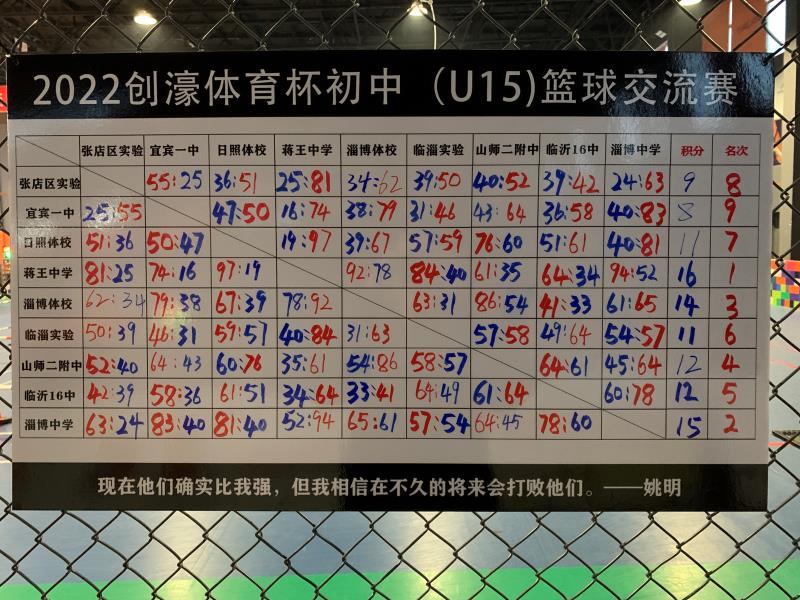 2022创濠体育杯初中（U15)篮球交流赛
张店区实验 宜宾一中 日照体校 蒋王中学 淄博体校 临淄实验 山师二附中 临沂16中 淄博中学 积分 名次
张店区实验 55:25 36:51 25:81 34:62 39:50 40:52 39:42 24:63 9 8
宜宾一中 25:55 47:50 16:74 38:79 31:46 43:64 36:58 40:83 8 9
日照体校 51:36 50:47 19:97 39:67 57:59 76:60 51:61 40:81 11 7
蒋王中学 81:25 74:16 97:19 92:78 84:40 61:35 64:34 94:52 16 1
淄博体校 62:34 79:38 67:39 78:92 63:31 86:54 41:33 61:65 14 3
临淄实验 50:39 46:31 59:57 40:84 31:63 57:58 49:64 54:57 11 6
山师二附中 52:40 64:43 60:76 35:61 54:86 58:57 64:61 45:64 12 4
临沂16中 42:39 58:36 61:51 34:64 33:41 64:49 61:64 60:78 12 5
淄博中学 63:24 83:40 81:40 52:94 65:61 57:54 64:45 78:60 15 2
现在他们确实比我强，但我相信在不久的将来会打败他们。——姚明